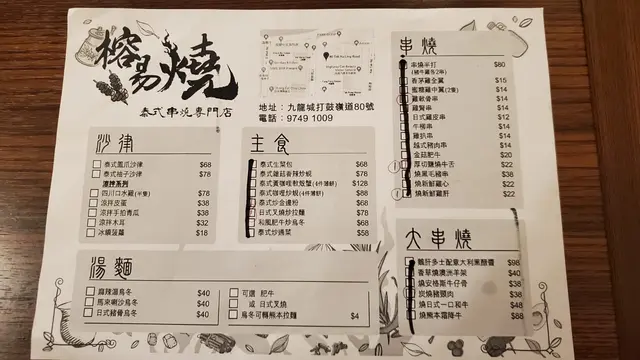 榕易燒
泰式串燒專門店
地址：九龍城打鼓嶺道80號
電話：9749 1009
沙律
泰式鳳爪沙律 $68
泰式柚子沙律 $78
涼拌系列
四川口水雞(半隻) $78
涼拌皮蛋 $38
涼拌手拍青瓜 $38
涼拌木耳 $32
冰鎮菠蘿 $18
主食
泰式生菜包 $68
泰式雜菇香辣炒蜆 $78
泰式黃咖喱軟殼蟹(4件薄餅) $128
泰式咖喱炒蜆(4件薄餅) $88
泰式炒金邊粉 $68
日式叉燒炒拉麵 $78
和風肥牛炒烏冬 $68
泰式炒通菜 $58
湯麵
麻辣湯烏冬 $40
馬來喇沙烏冬 $40
日式豬骨烏冬 $40
可選 肥牛
或 日式叉燒
烏冬可轉熊本拉麵 $4
串燒
串燒半打 $80
(豬牛雞各2串)
香茅雞全翼 $15
蜜糖雞中翼(2隻) $14
雞軟骨串 $14
雞腎串 $14
日式雞痙串 $12
牛柳串 $14
雞扒串 $14
越式豬肉串 $14
金菇肥牛 $20
厚切鹽燒牛舌 $22
燒黑毛豬串 $38
燒新鮮雞心 $22
燒新鮮雞肝 $22
大串燒
鵝肝多士配意大利黑醋醬 $98
香草燒澳洲羊架 $40
燒安格斯牛仔骨 $38
炭燒豬頸肉 $38
燒日式一口和牛 $48
燒熊本霜降牛 $88